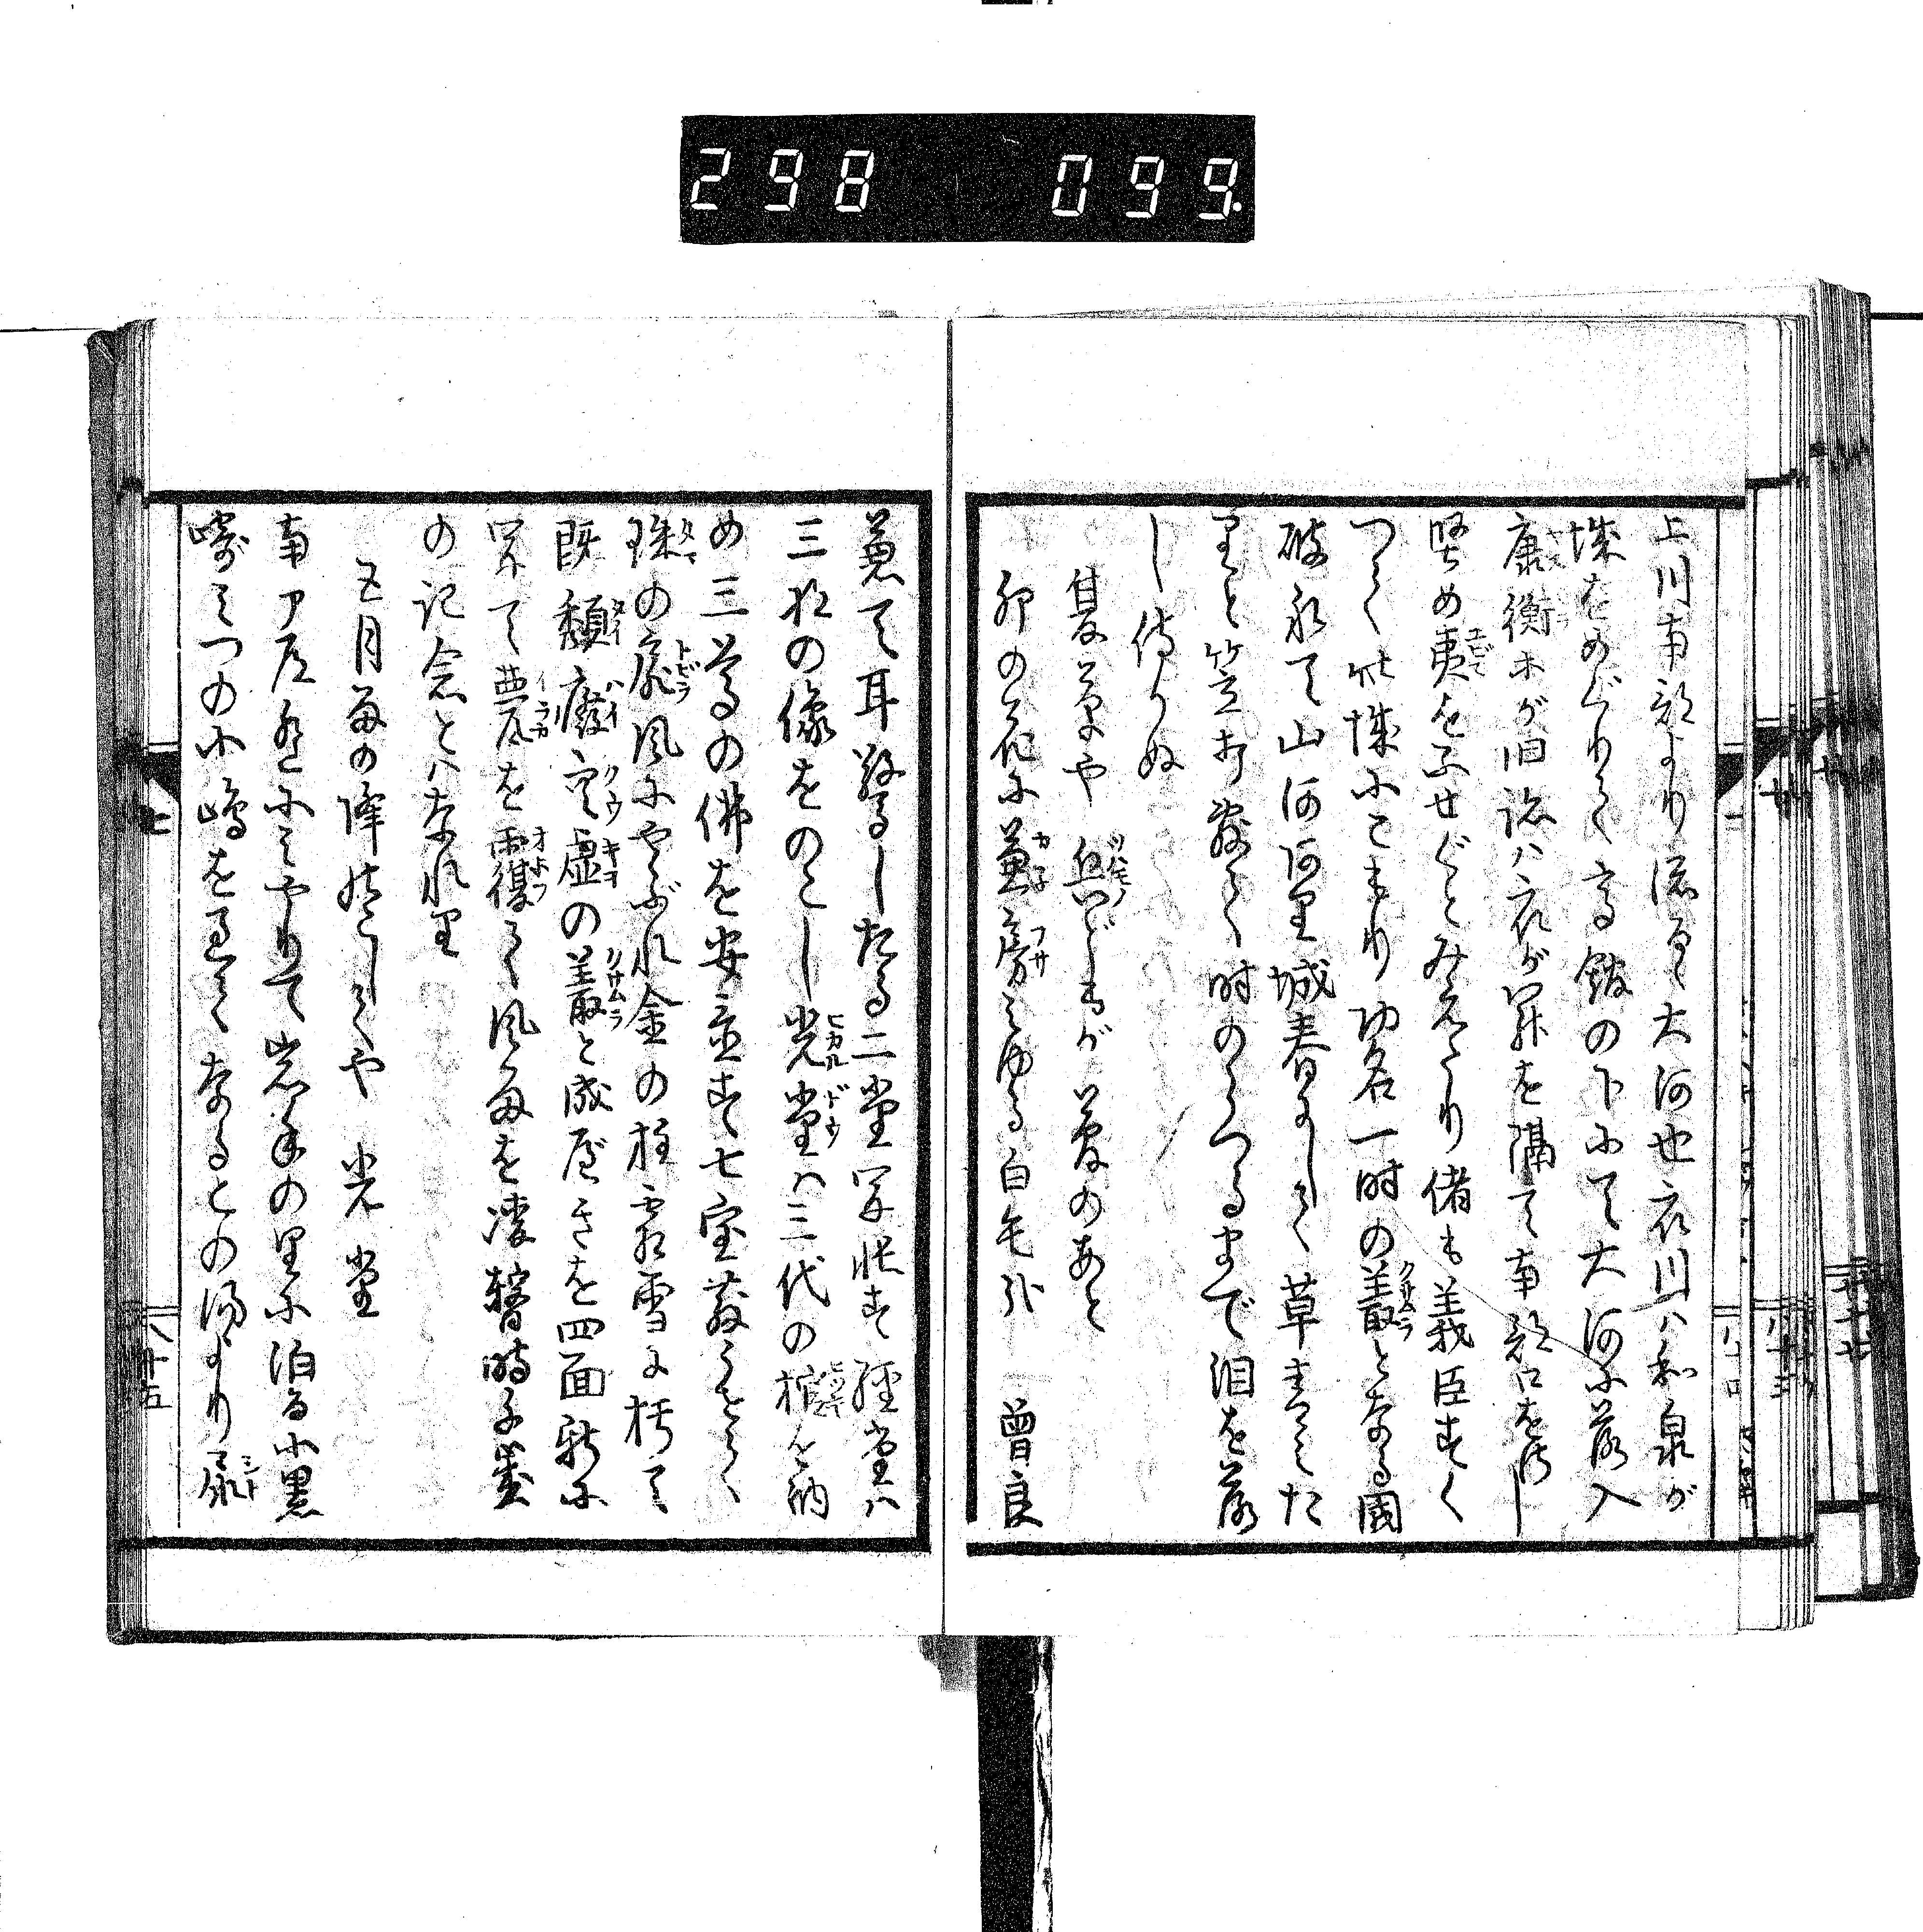 298 099.
上川南部より流るゝ大河也衣川ハ和泉が
城をめぐりて高館の下にて大河に落入
康衡等が旧跡ハ衣が関を隔て南部口をさし
堅め夷をふせぐとみえたり偖も義臣すぐ
つて此城にこもり功名一時の叢となる國
破れて山河あり城春にして草青ミた
りと笠打敷て時のうつるまで泪を落
し侍りぬ
夏草や兵どもが夢のあと
卯の花に兼房ミゆる白毛哉 曽良
兼て耳驚したる二堂開帳す経堂ハ
三将の像をのこし光堂ハ三代の棺を納
め三尊の佛を安置す七宝散うせて
珠の扉風にやぶれ金の柱霜雪に朽て
既頽廃空虚の叢と成べきを四面新に
囲て甍を覆て風雨を凌暫時千歳
の記念とハなれり
五月雨の降残してや光堂
南部道遥にミやりて岩手の里に泊る小黒
崎ミつの小嶋を過てなるこの湯より尿
廿五